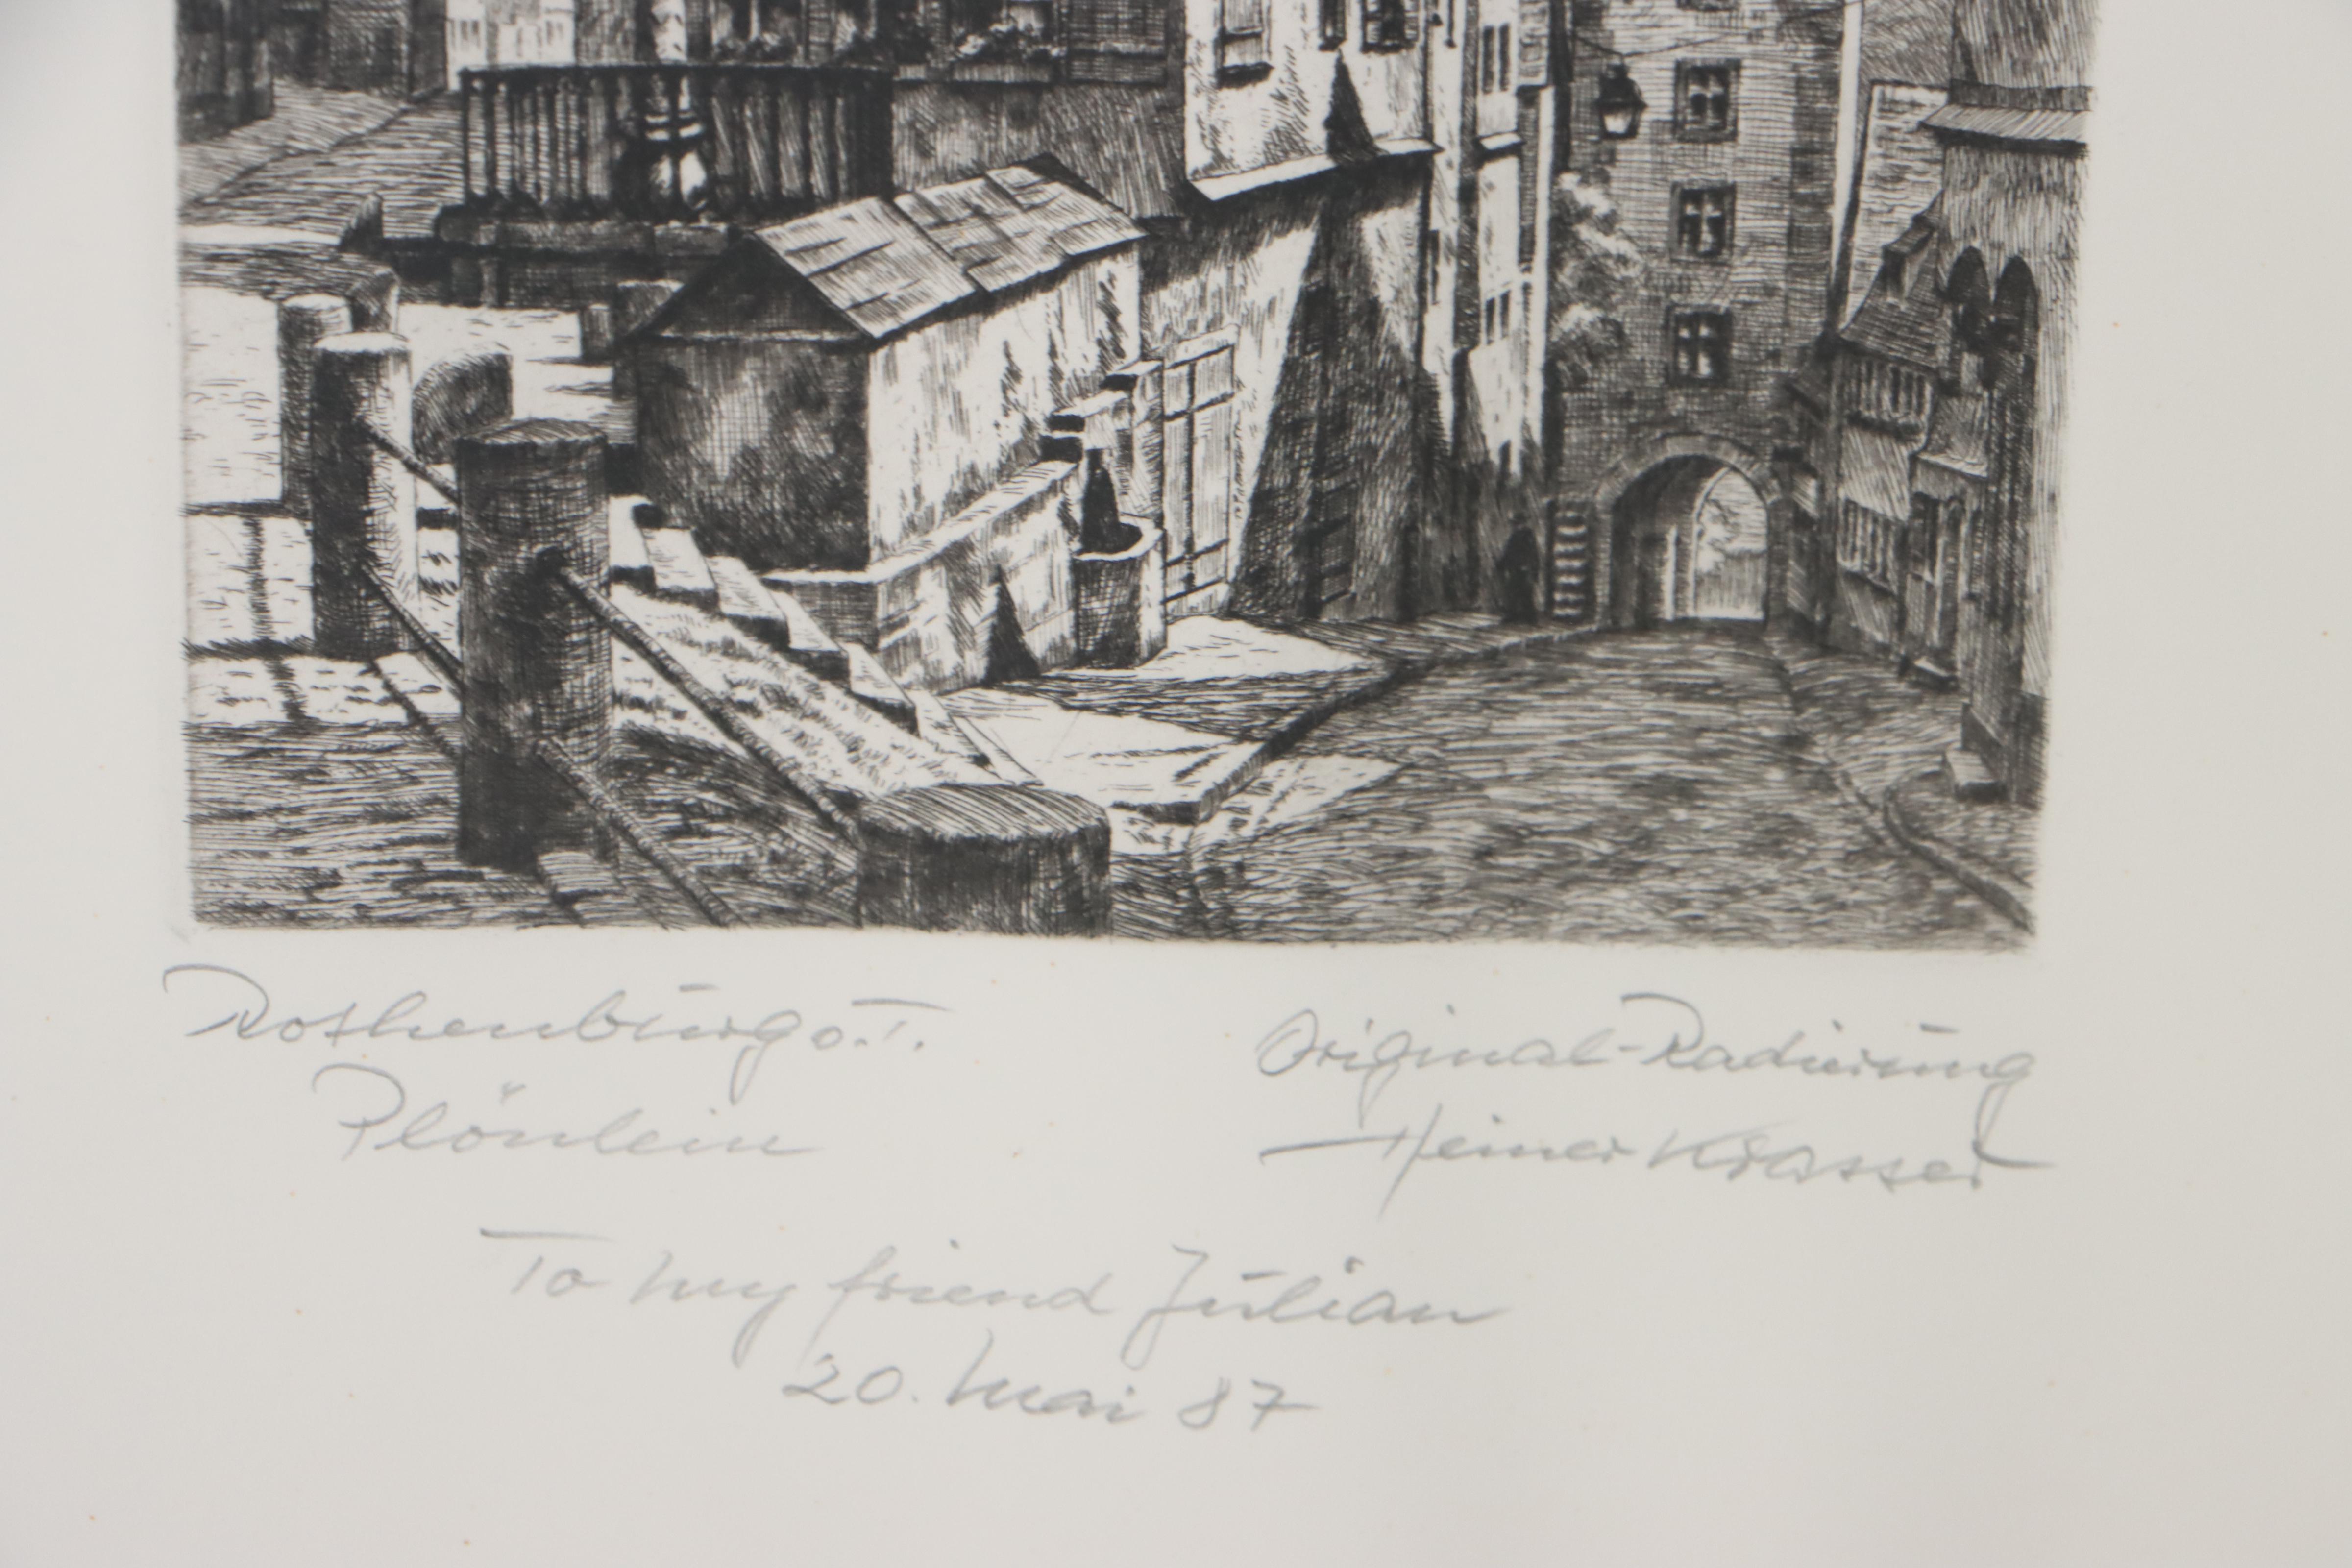 Rothenburg o.T.
Plönlein
Original-Radierung
Heiner Krasser
To my friend Julian
20. Mai 87